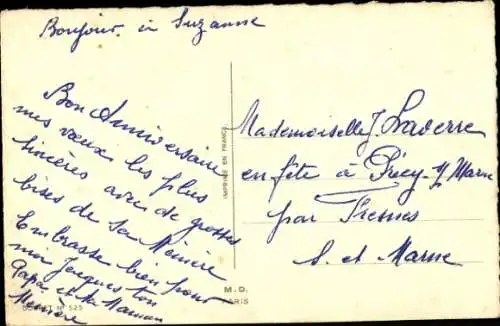 Bonjour à Suzanne
Bon Anniversaire
mes vœux les plus
sincères avec de grosses
bises de sa Mémère
Embrasse bien pour
moi Jacques ton
Papa et ta Maman
Mémère
IMPRIMÉ EN FRANCE
M. D.
PARIS
Nº 525
Mademoiselle J. Laverre
en fête à Précy s/ Marne
par Fresnes
S. et Marne